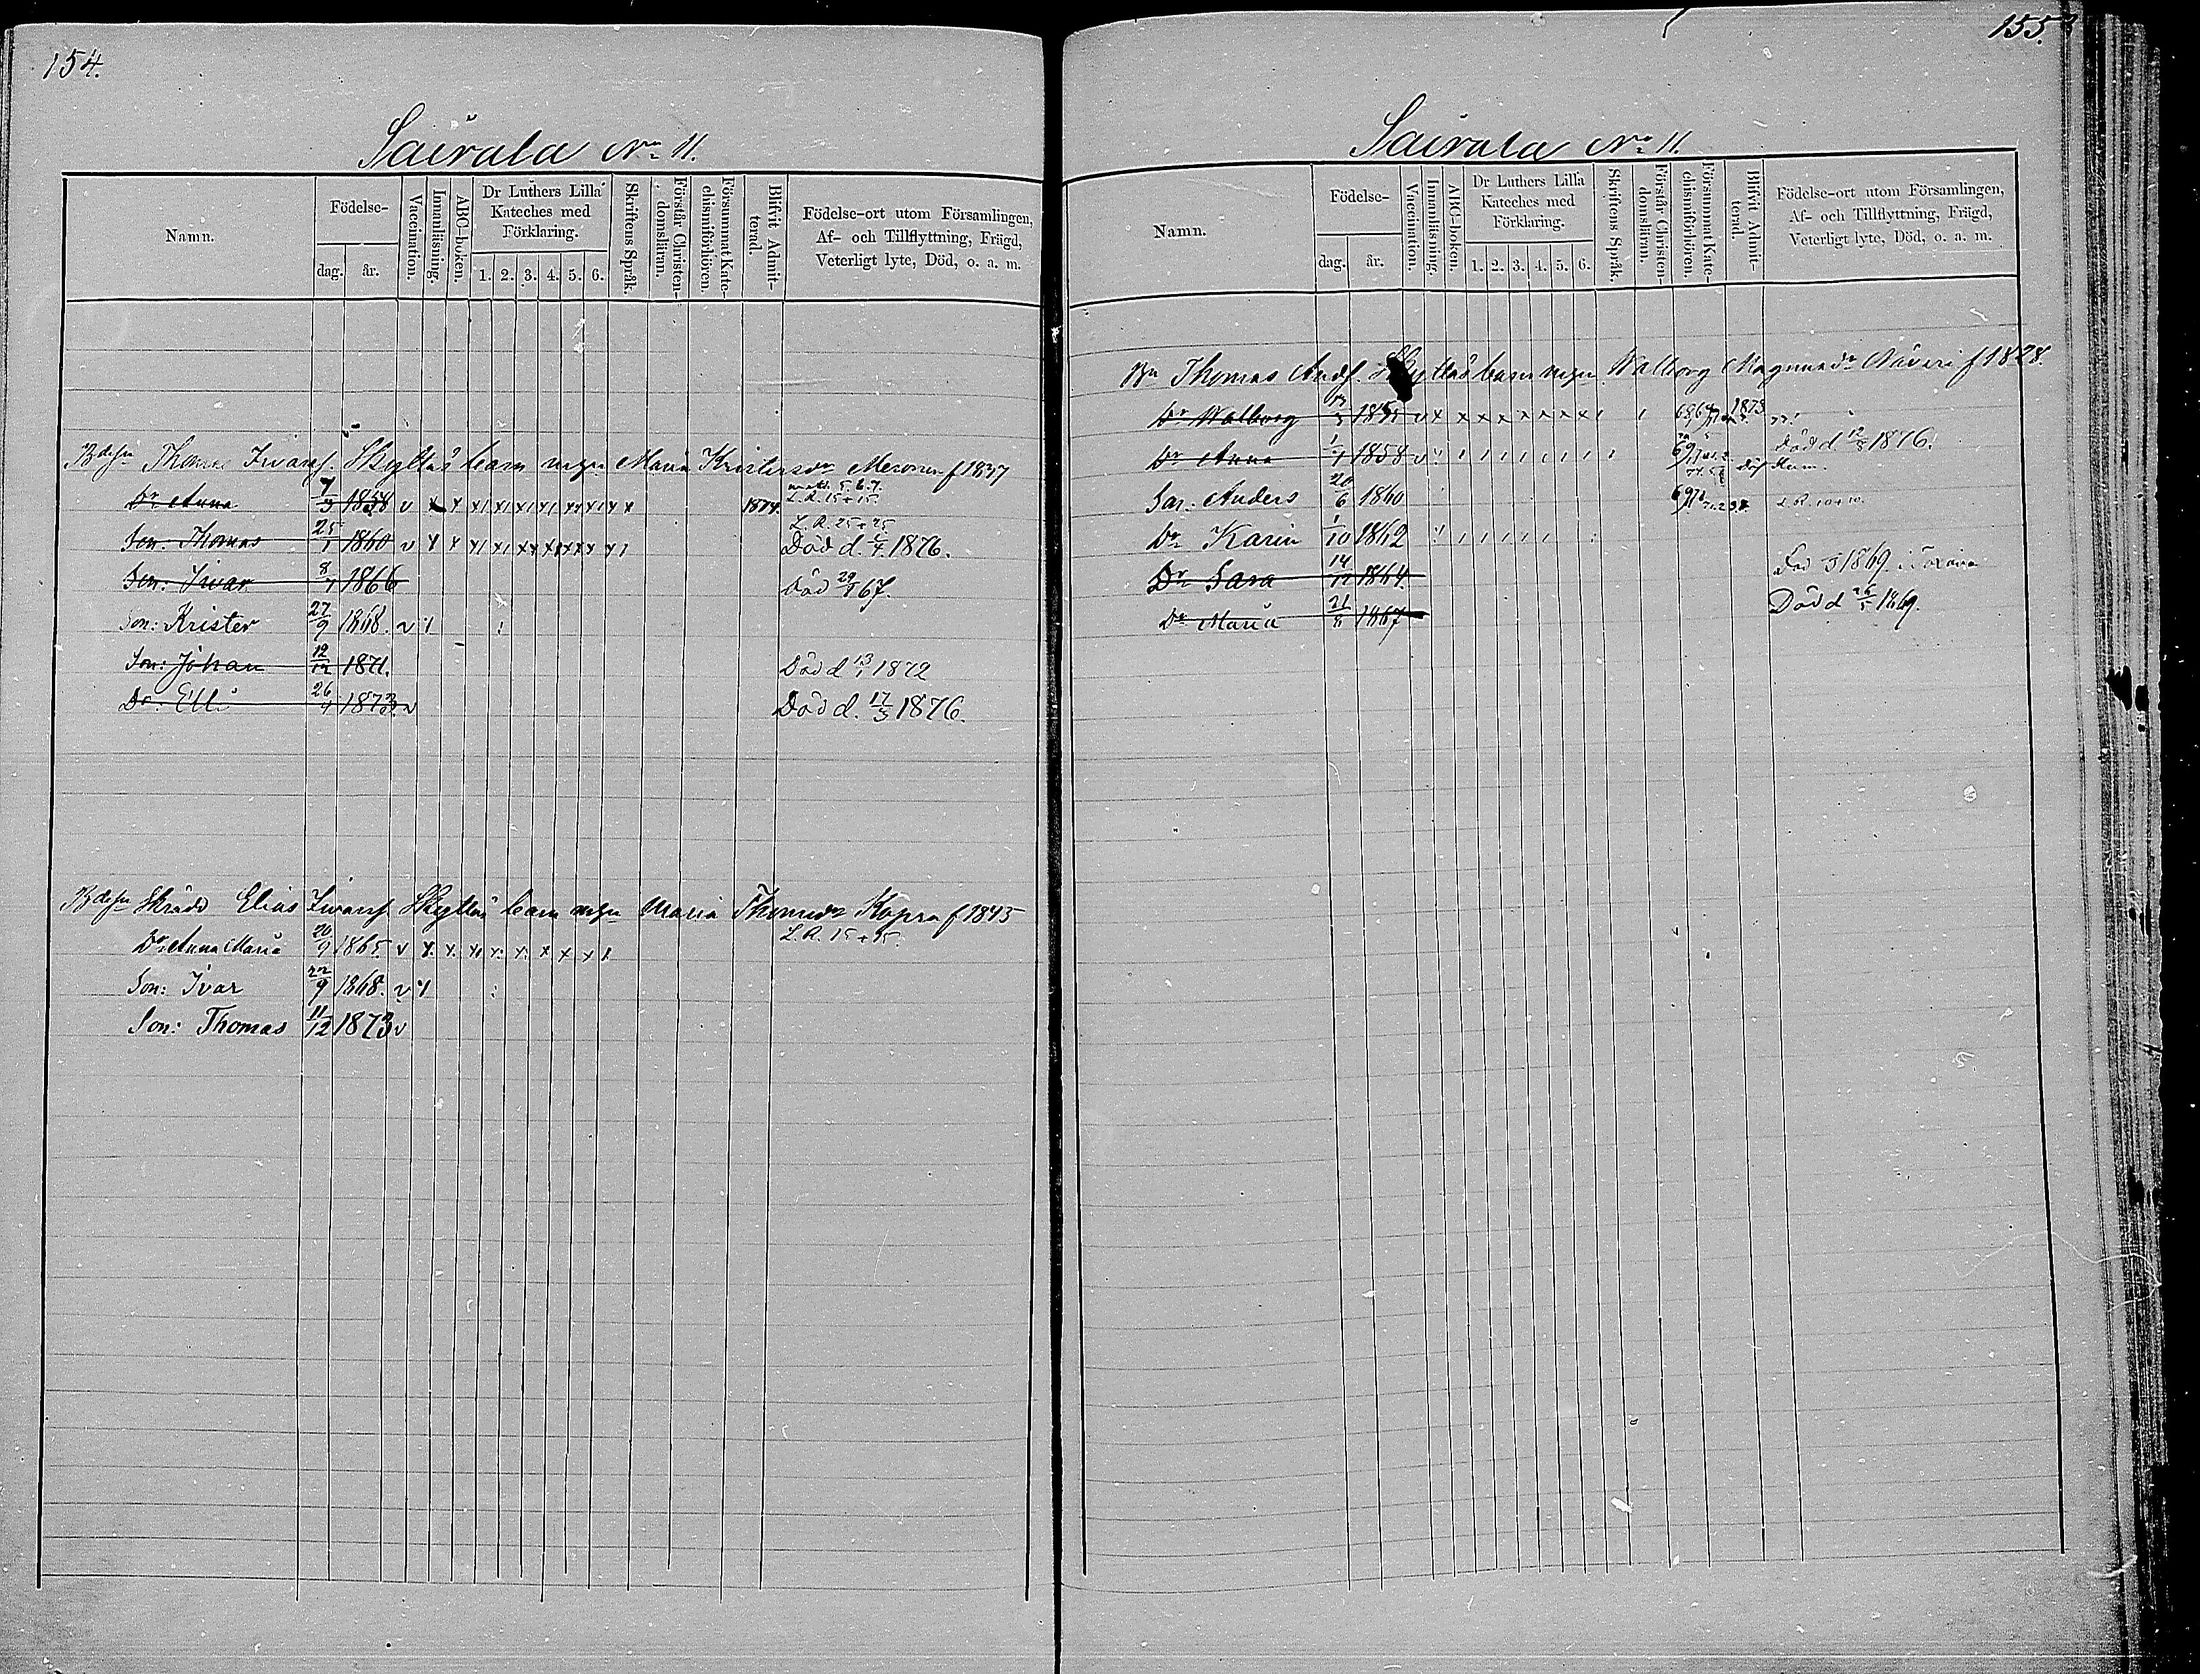 154.
Sairala No 11.
Namn.
Födelse-
dag.
år.
Vaccination.
Innanläsning.
ABC-boken.
Dr Luthers Lilla Kateches med Förklaring.
1. 2. 3. 4. 5. 6.
Skriftens Språk.
Förstår Christendomsläran.
Försummat Katechismiförhören.
Blifvit Admitterad.
Födelse-ort utom Församlingen,
Af- och Tillflyttning, Frägd,
Veterligt lyte, Död, o. a. m.
Thomas Ivarsf. Skyttäs barn m Maria Kristersdr f 1837
Dr Anna 7/3 1858 v x x x x x x x x x 1874. L. R. 15+15.
Son: Thomas 25/1 1860 v x x x x x x x x L. R. 25+25 Död d. 1876.
Son: Ivar 8/1 1866 Död 29/1 67.
Son: Krister 27/9 1868. v 1
Son: Johan 12/12 1871. Död d 13/1 1872
Dr: Elli 26/9 1873. v Död d. 17/3 1876.
Skrädd Elias Ivarsf. Skyttäs barn m Maria Thomasdr Kopra f 1845
Dr Anna Maria 20/9 1865. v x x x x x x x x L. R. 15+15.
Son: Ivar 22/9 1868. v 1
Son: Thomas 11/12 1873 v
155.
Sairala No 11.
Namn.
Födelse-
dag.
år.
Vaccination.
Innanläsning.
ABC-boken.
Dr Luthers Lilla Kateches med Förklaring.
1. 2. 3. 4. 5. 6.
Skriftens Språk.
Förstår Christendomsläran.
Försummat Katechismiförhören.
Blifvit Admitterad.
Födelse-ort utom Församlingen,
Af- och Tillflyttning, Frägd,
Veterligt lyte, Död, o. a. m.
Bn Thomas Andf. Skyttäs barn m Walborg Magnusdr Näveri f 1828.
Dr Walborg v x x x x x x x x 1873
Dr Anna 1/1 1858 v Död d. 12/8 1876.
Son: Anders 20/6 1860
Dr Karin 1/10 1862
Dr Sara 14/12 1864. 1869.
Dr Maria 21/8 1867 Död d 26/5 1869.